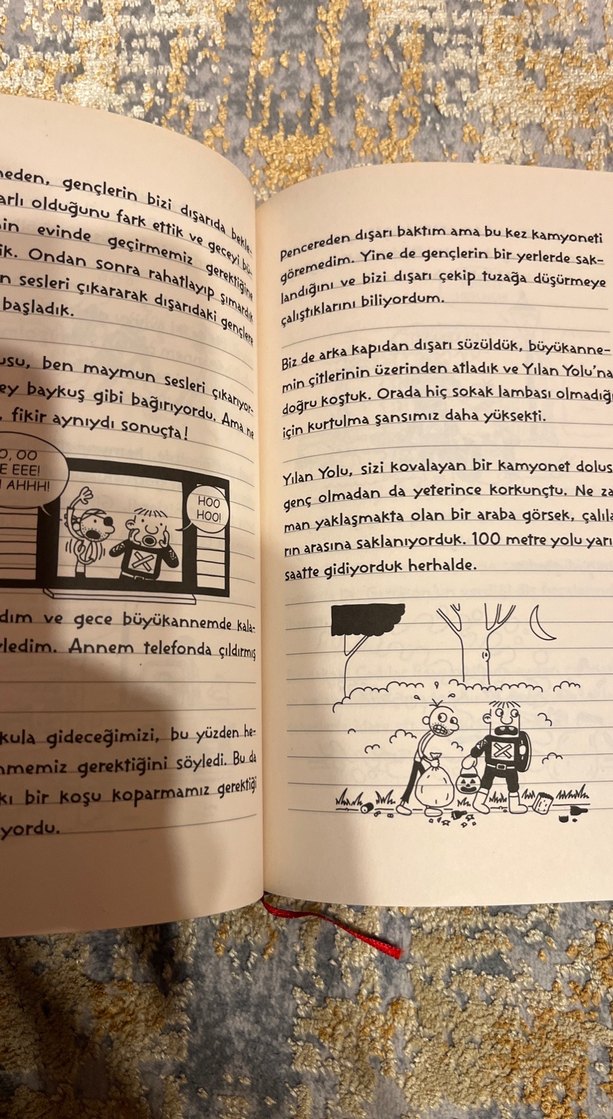 neden, gençlerin bizi dışarıda bekle-
arlı olduğunu fark ettik ve geceyi bü-
in evinde geçirmemiz gerektiğine
ik. Ondan sonra rahatlayıp şımardık
n sesleri çıkararak dışarıdaki gençlere
başladık.
usu, ben maymun sesleri çıkarıyor-
ey baykuş gibi bağırıyordu. Ama ne
, fikir aynıydı sonuçta!
O, OO
E EEE!
AHHH!
HOO
HOO!
dım ve gece büyükannemde kala-
ledim. Annem telefonda çıldırmış
kula gideceğimizi, bu yüzden he-
nmemiz gerektiğini söyledi. Bu da
kı bir koşu koparmamız gerektiği
yordu.
Pencereden dışarı baktım ama bu kez kamyoneti
göremedim. Yine de gençlerin bir yerlerde sak-
landığını ve bizi dışarı çekip tuzağa düşürmeye
çalıştıklarını biliyordum.
Biz de arka kapıdan dışarı süzüldük, büyükanne-
min çitlerinin üzerinden atladık ve Yılan Yolu'na
doğru koştuk. Orada hiç sokak lambası olmadığı
için kurtulma şansımız daha yüksekti.
Yılan Yolu, sizi kovalayan bir kamyonet dolus
genç olmadan da yeterince korkunçtu. Ne za
man yaklaşmakta olan bir araba görsek, çalıla
rın arasına saklanıyorduk. 100 metre yolu yarı
saatte gidiyorduk herhalde.